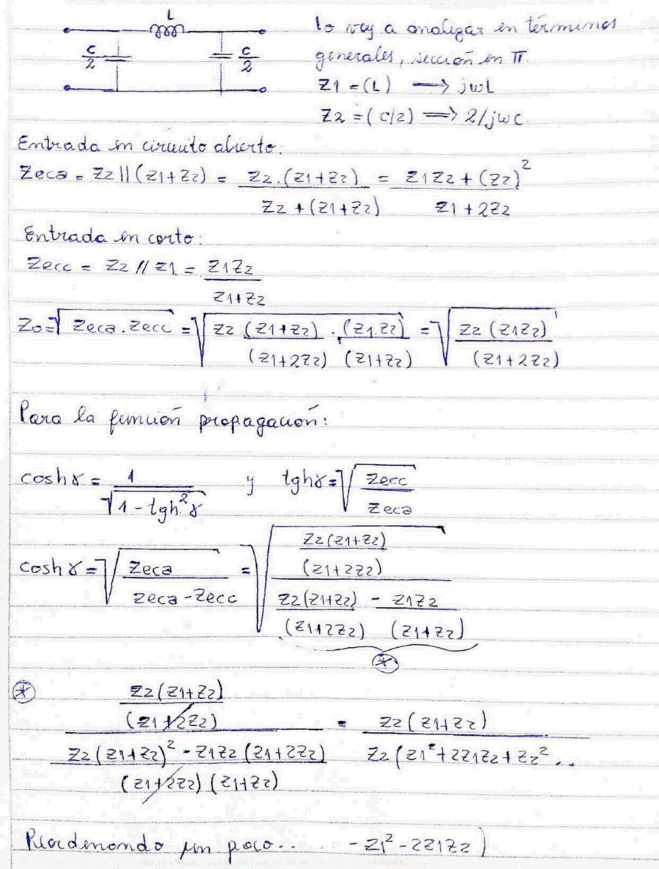 L
C/2
C/2
Lo voy a analizar en términos
generales, sección en π
Z1 = (L) → jωL
Z2 = (C/2) ⟹ 2/jωC
Entrada en circuito abierto:
Zeca = Z2 || (Z1+Z2) = Z2.(Z1+Z2) / Z2+(Z1+Z2) = Z1Z2+(Z2)² / Z1+2Z2
Entrada en corto:
Zecc = Z2 // Z1 = Z1Z2 / Z1+Z2
Zo = √(Zeca.Zecc) = √(Z2 (Z1+Z2) / (Z1+2Z2) . (Z1.Z2) / (Z1+Z2)) = √(Z2 (Z1Z2) / (Z1+2Z2))
Para la función propagación:
coshγ = 1 / √(1 - tgh²γ) y tghγ = √(Zecc / Zeca)
coshγ = √(Zeca / Zeca - Zecc) = √((Z2(Z1+Z2) / (Z1+2Z2)) / (Z2(Z1+Z2) / (Z1+2Z2) - Z1Z2 / (Z1+Z2)))
(*)
(*) (Z2(Z1+Z2) / (Z1+2Z2)) / (Z2(Z1+Z2)² - Z1Z2(Z1+2Z2) / (Z1+2Z2)(Z1+Z2)) = Z2(Z1+Z2) / Z2(Z1²+2Z1Z2+Z2²..
Reordenando un poco.. -Z1²-2Z1Z2)